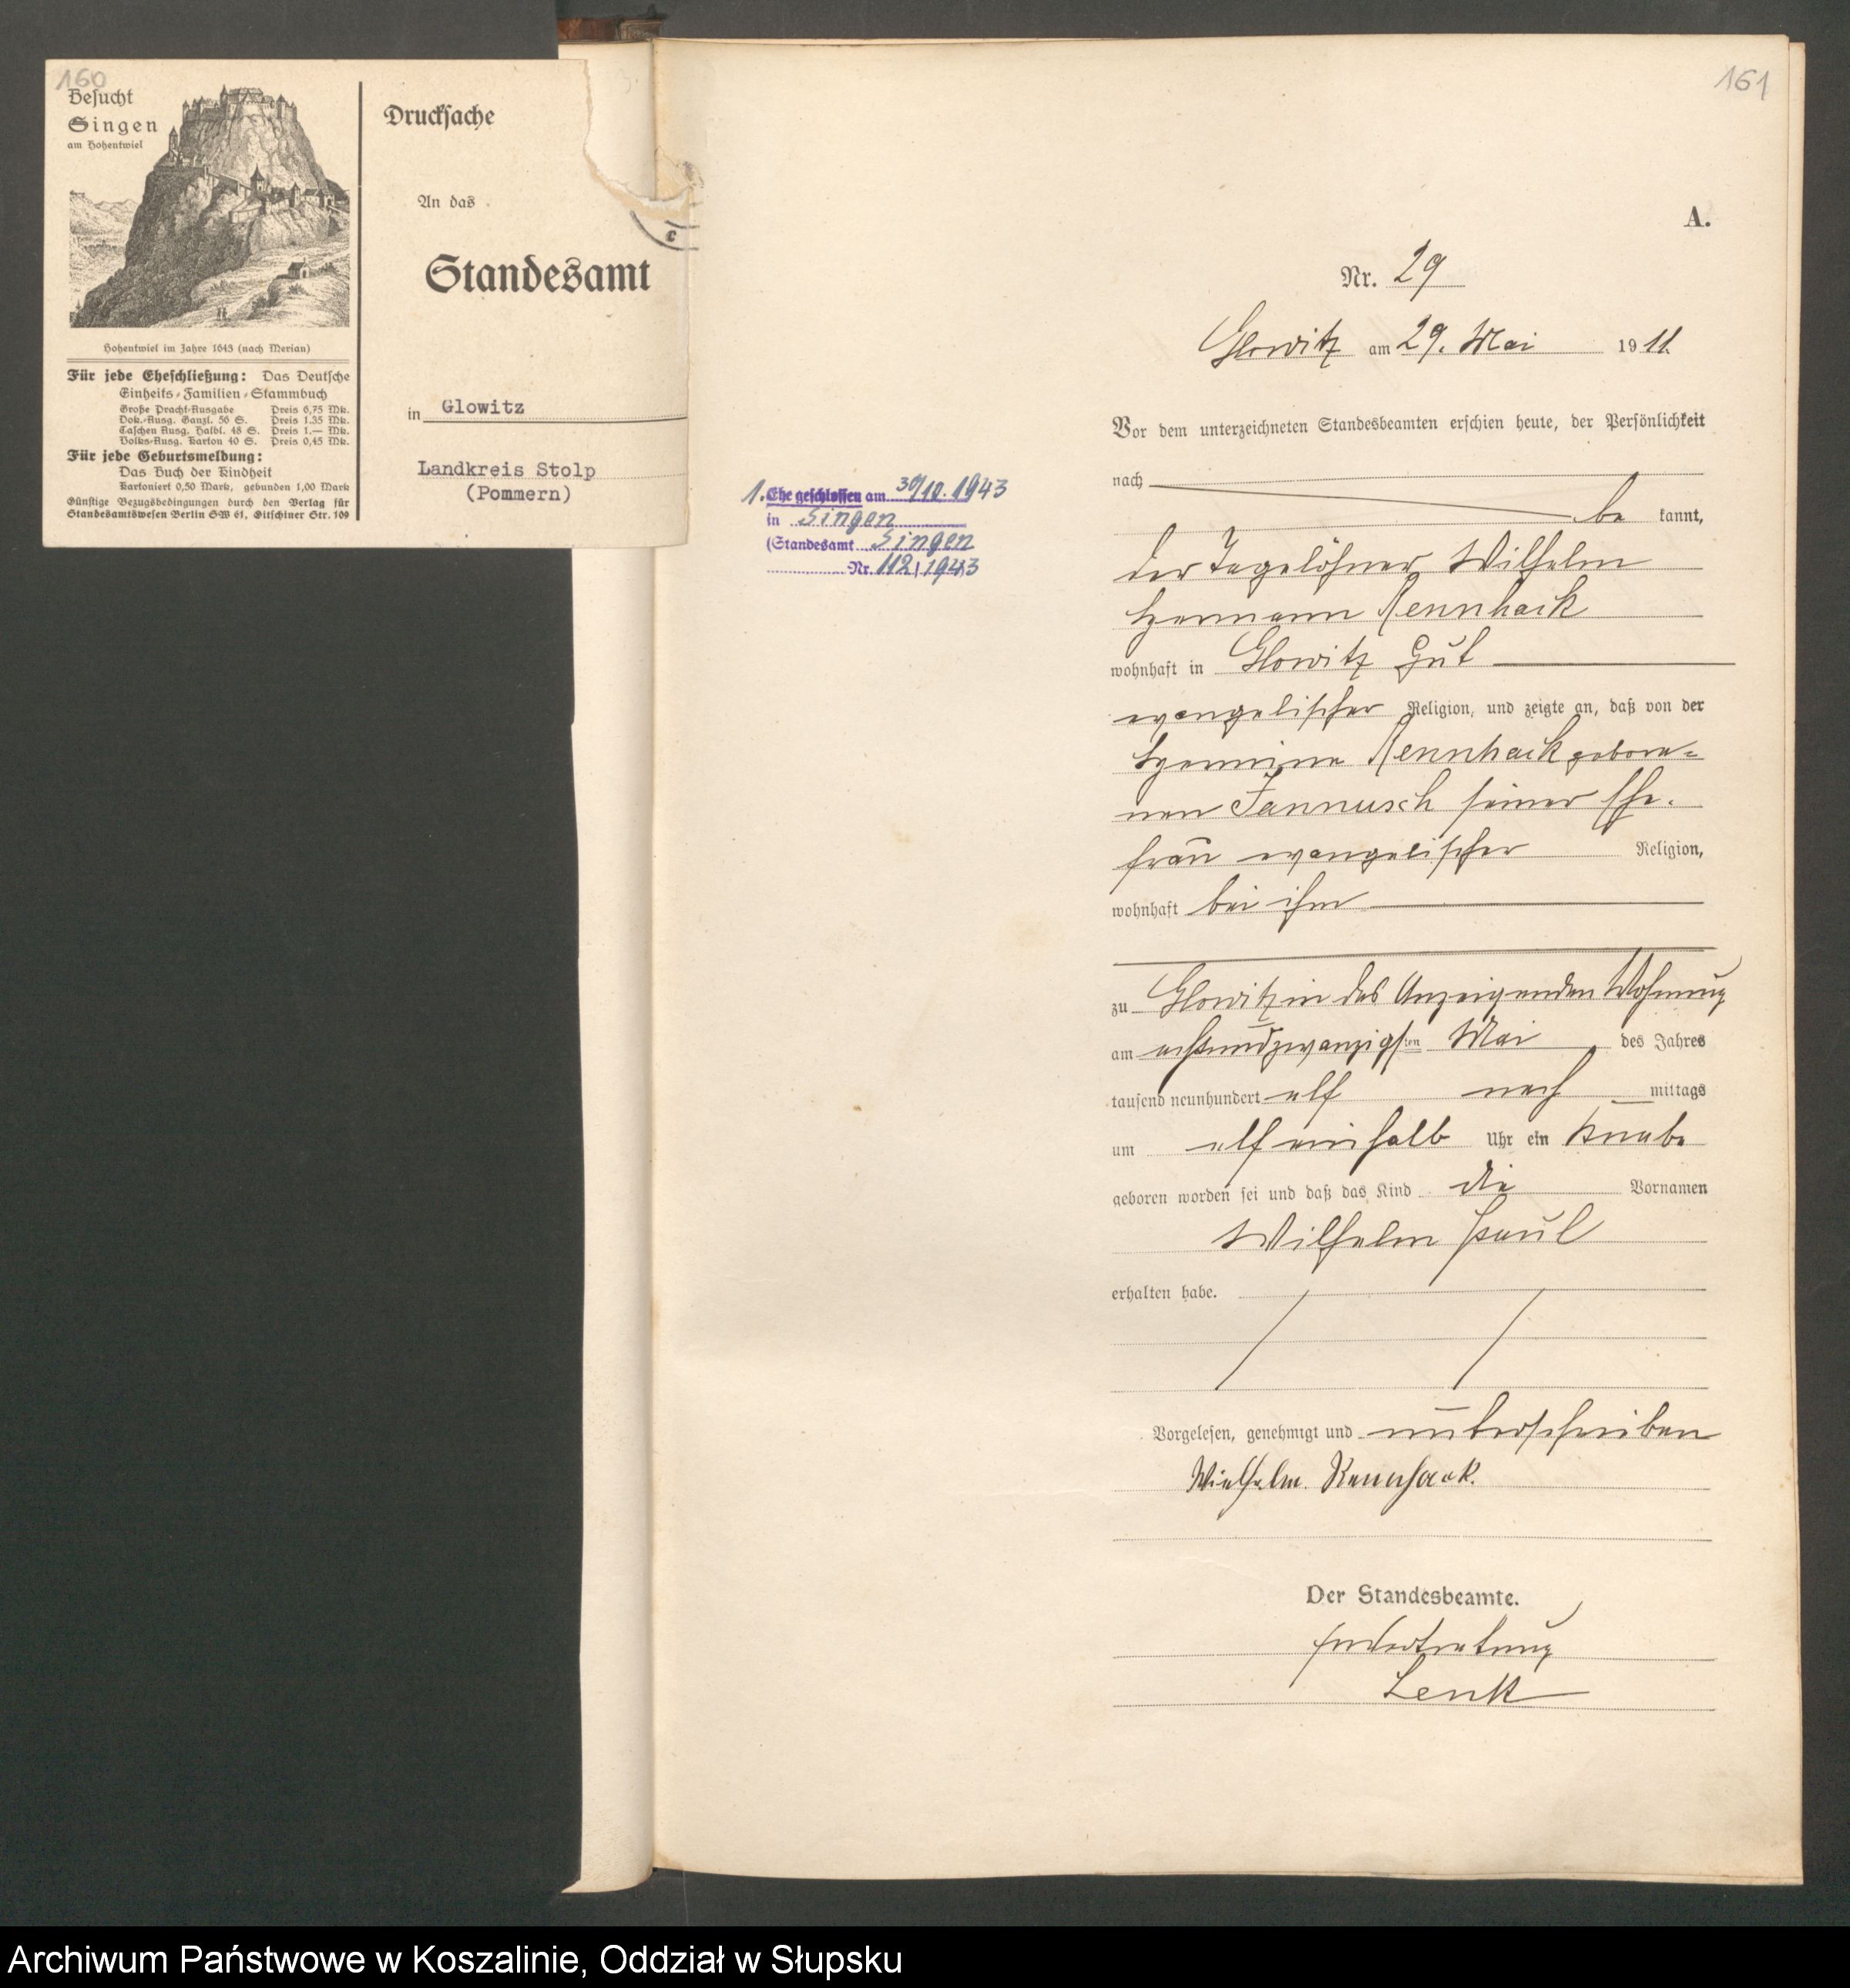 160
Besucht
Singen
am Hohentwiel
Hohentwiel im Jahre 1643 (nach Merian)
Für jede Eheschließung: Das Deutsche
Einheits-Familien-Stammbuch
Große Pracht-Ausgabe Preis 6,75 Mk.
Dok.-Ausg. Ganzl. 56 S. Preis 1.35 Mk.
Taschen Ausg. Halbl. 48 S. Preis 1.— Mk.
Volks-Ausg. Karton 40 S. Preis 0,45 Mk.
Für jede Geburtsmeldung:
Das Buch der Kindheit
Kartoniert 0,50 Mark, gebunden 1,00 Mark
Günstige Bezugsbedingungen durch den Verlag für
Standesamtswesen Berlin SW 61, Gitschiner Str. 109
Drucksache
An das
Standesamt
in Glowitz
Landkreis Stolp
(Pommern)
c
161
A.
Nr. 29
Glowitz am 29. Mai 1911.
Vor dem unterzeichneten Standesbeamten erschien heute, der Persönlichkeit
nach
be kannt,
der Tagelöhner Wilhelm
Hermann Rennhack
wohnhaft in Glowitz Gut
evangelischer Religion, und zeigte an, daß von der
Hermine Rennhack gebore-
nen Jannusch seiner Ehe-
frau evangelischer Religion,
wohnhaft bei ihm
zu Glowitz in des Anzeigenden Wohnung
am achtundzwanzigsten Mai des Jahres
tausend neunhundert elf nach mittags
um elf einhalb Uhr ein Knabe
geboren worden sei und daß das Kind die Vornamen
Wilhelm Paul
erhalten habe.
Vorgelesen, genehmigt und unterschrieben
Wielhelm. Rennhack.
Der Standesbeamte.
In Vertretung
Lenk
1. Ehe geschlossen am 30/10. 1943
in Singen
(Standesamt Singen
Nr. 112/1943
Archiwum Państwowe w Koszalinie, Oddział w Słupsku